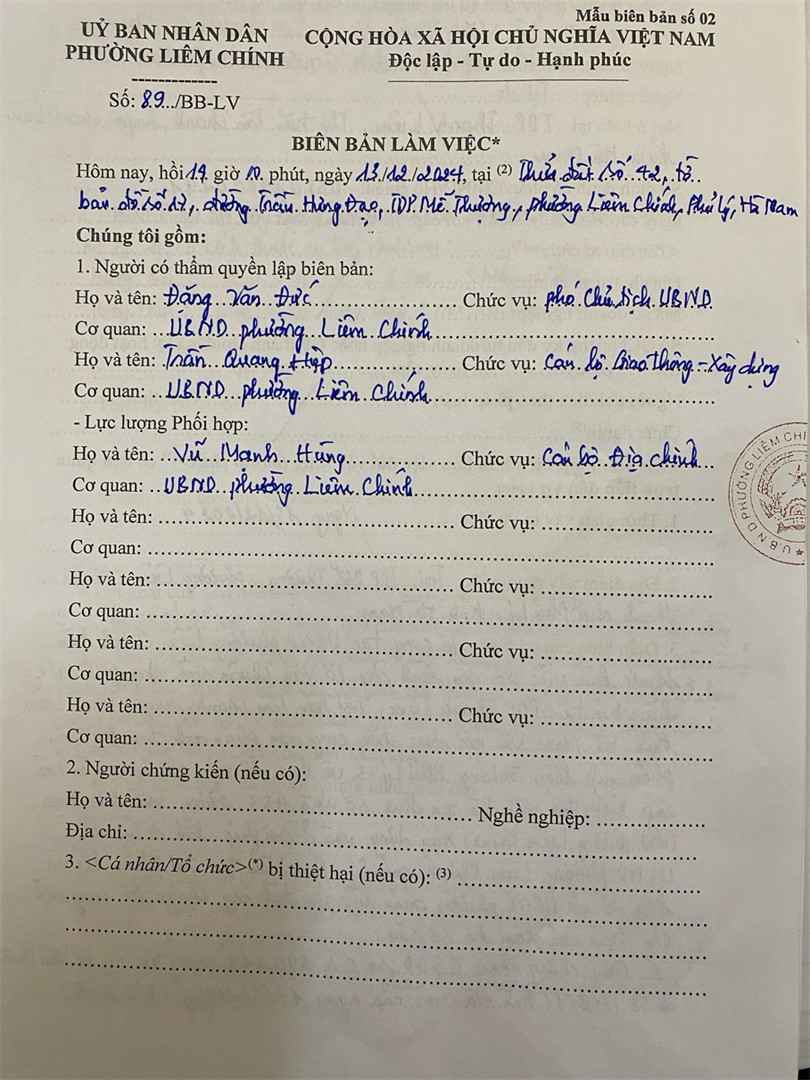 Mẫu biên bản số 02
UỶ BAN NHÂN DÂN
PHƯỜNG LIÊM CHÍNH
CỘNG HÒA XÃ HỘI CHỦ NGHĨA VIỆT NAM
Độc lập - Tự do - Hạnh phúc
Số: 89../BB-LV
BIÊN BẢN LÀM VIỆC*
Hôm nay, hồi 14 giờ 10 phút, ngày 13/12/2024, tại (2) Thửa đất số 42, tờ
bản đồ số 17, đường Trần Hưng Đạo, TDP Mễ Thượng, phường Liêm Chính, Phủ Lý, Hà Nam
Chúng tôi gồm:
1. Người có thẩm quyền lập biên bản:
Họ và tên: Đặng Văn Đức ........ Chức vụ: phó Chủ tịch UBND.
Cơ quan: ...UBND phường Liêm Chính ........
Họ và tên: Trần Quang Hiệp ........ Chức vụ: Cán bộ Giao thông - Xây dựng
Cơ quan: ...UBND phường Liêm Chính ........
- Lực lượng Phối hợp:
Họ và tên: ...Vũ Mạnh Hùng ........ Chức vụ: Cán bộ Địa chính...
Cơ quan: ...UBND phường Liêm Chính ........
Họ và tên: ........ Chức vụ: ........
Cơ quan: ........
Họ và tên: ........ Chức vụ: ........
Cơ quan: ........
Họ và tên: ........ Chức vụ: ........
Cơ quan: ........
Họ và tên: ........ Chức vụ: ........
Cơ quan: ........
2. Người chứng kiến (nếu có):
Họ và tên: ........ Nghề nghiệp: ........
Địa chỉ: ........
3. <Cá nhân/Tổ chức>(*) bị thiệt hại (nếu có): (3) ........
U.B.N.D PHƯỜNG LIÊM CHI